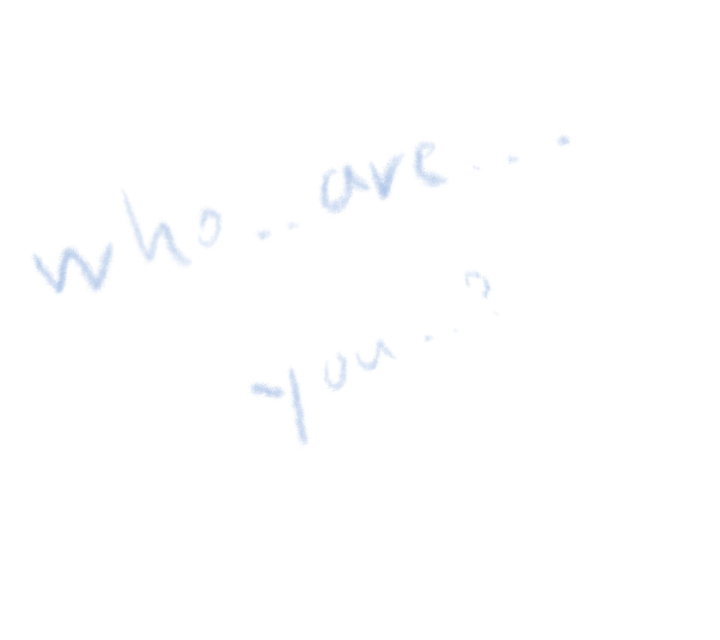 who..are...
you..?